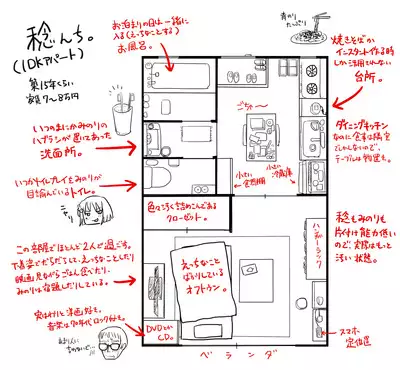 稔んち。
(1DKアパート)
築15年くらい
家賃7〜8万円
お泊まりの日は一緒に
入る(えっちなことする)
お風呂。
青のり
たっぷり
焼きそばか
インスタント作る時
しか活用されない
台所。
いつのまにかみのりの
ハブラシが置いてあった
洗面所。
ごちゃ〜
ダイニングキッチン
なのに食事は寝室
でしかしないので、
テーブルは物置き。
いつかトイレプレイをみのりが
目論んでいるトイレ。
ニヤリ
小さい
食器棚
小さい
冷蔵庫
色々と汚く詰めこんである
クローゼット。
この部屋でほとんど2人が過ごす。
不真面でだらだらして、えっちなことしたり
映画見ながらごはん食べたり、
みのりは宿題したりしている。
えっちなこと
ばかりしている
オフトゥン。
ハンガーラック
稔もみのりも
片付け能力低い
ので、実際はもっと
汚い状態。
実はけっこう洋画好き。
音楽は70年代ロック好きそう。
DVDとか
CD。
スマホ
定位置
ベランダ